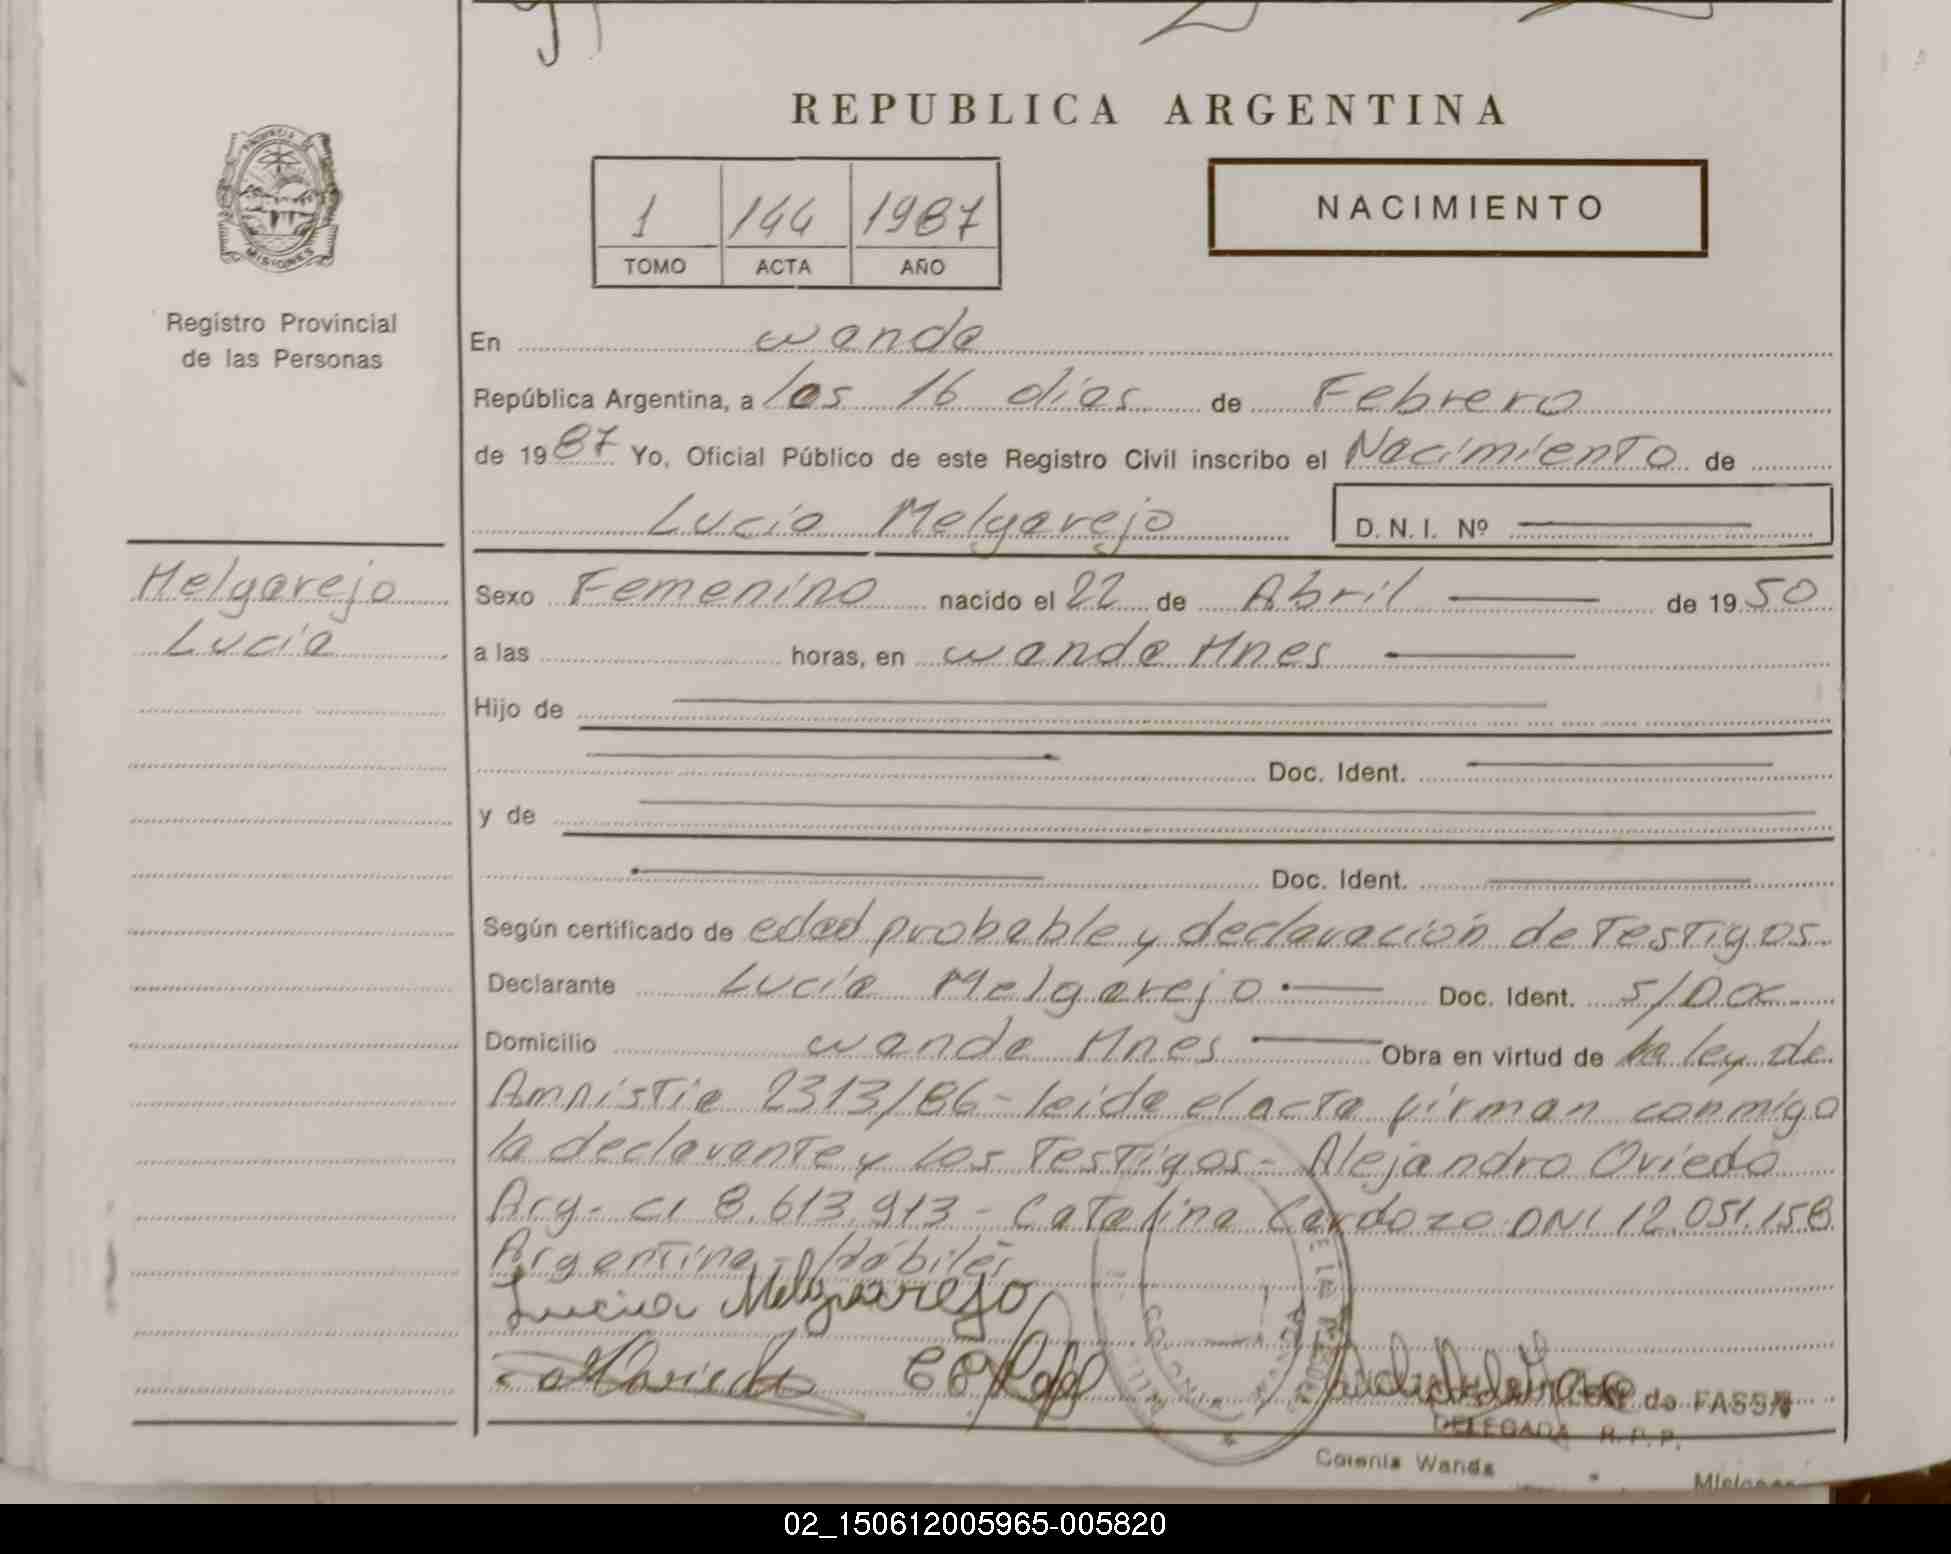 REPUBLICA ARGENTINA
PROVINCIA DE
MISIONES
1 144 1987
TOMO ACTA AÑO
NACIMIENTO
Registro Provincial
de las Personas
En wanda
República Argentina, a los 16 días de Febrero
de 1987 Yo, Oficial Público de este Registro Civil inscribo el Nacimiento de
Lucía Melgarejo D. N. I. Nº
Melgarejo
Lucía
Sexo Femenino nacido el 22 de Abril de 1950
a las horas, en wanda Mnes
Hijo de
Doc. Ident.
y de
Doc. Ident.
Según certificado de edad probable y declaración de Testigos
Declarante Lucía Melgarejo Doc. Ident. S/Doc
Domicilio wanda Mnes Obra en virtud de la ley de
Amnistia 2313/86 - leída el acta firman conmigo
la declarante y los Testigos - Alejandro Oviedo
Arg - CI 8.613.913 - Catalina Cardozo DNI 12.051.158
Argentina - Hábiles
Lucia Melgarejo
de FASSA
DELEGADA R. P. P.
Colonia Wanda Misiones
02_150612005965-005820